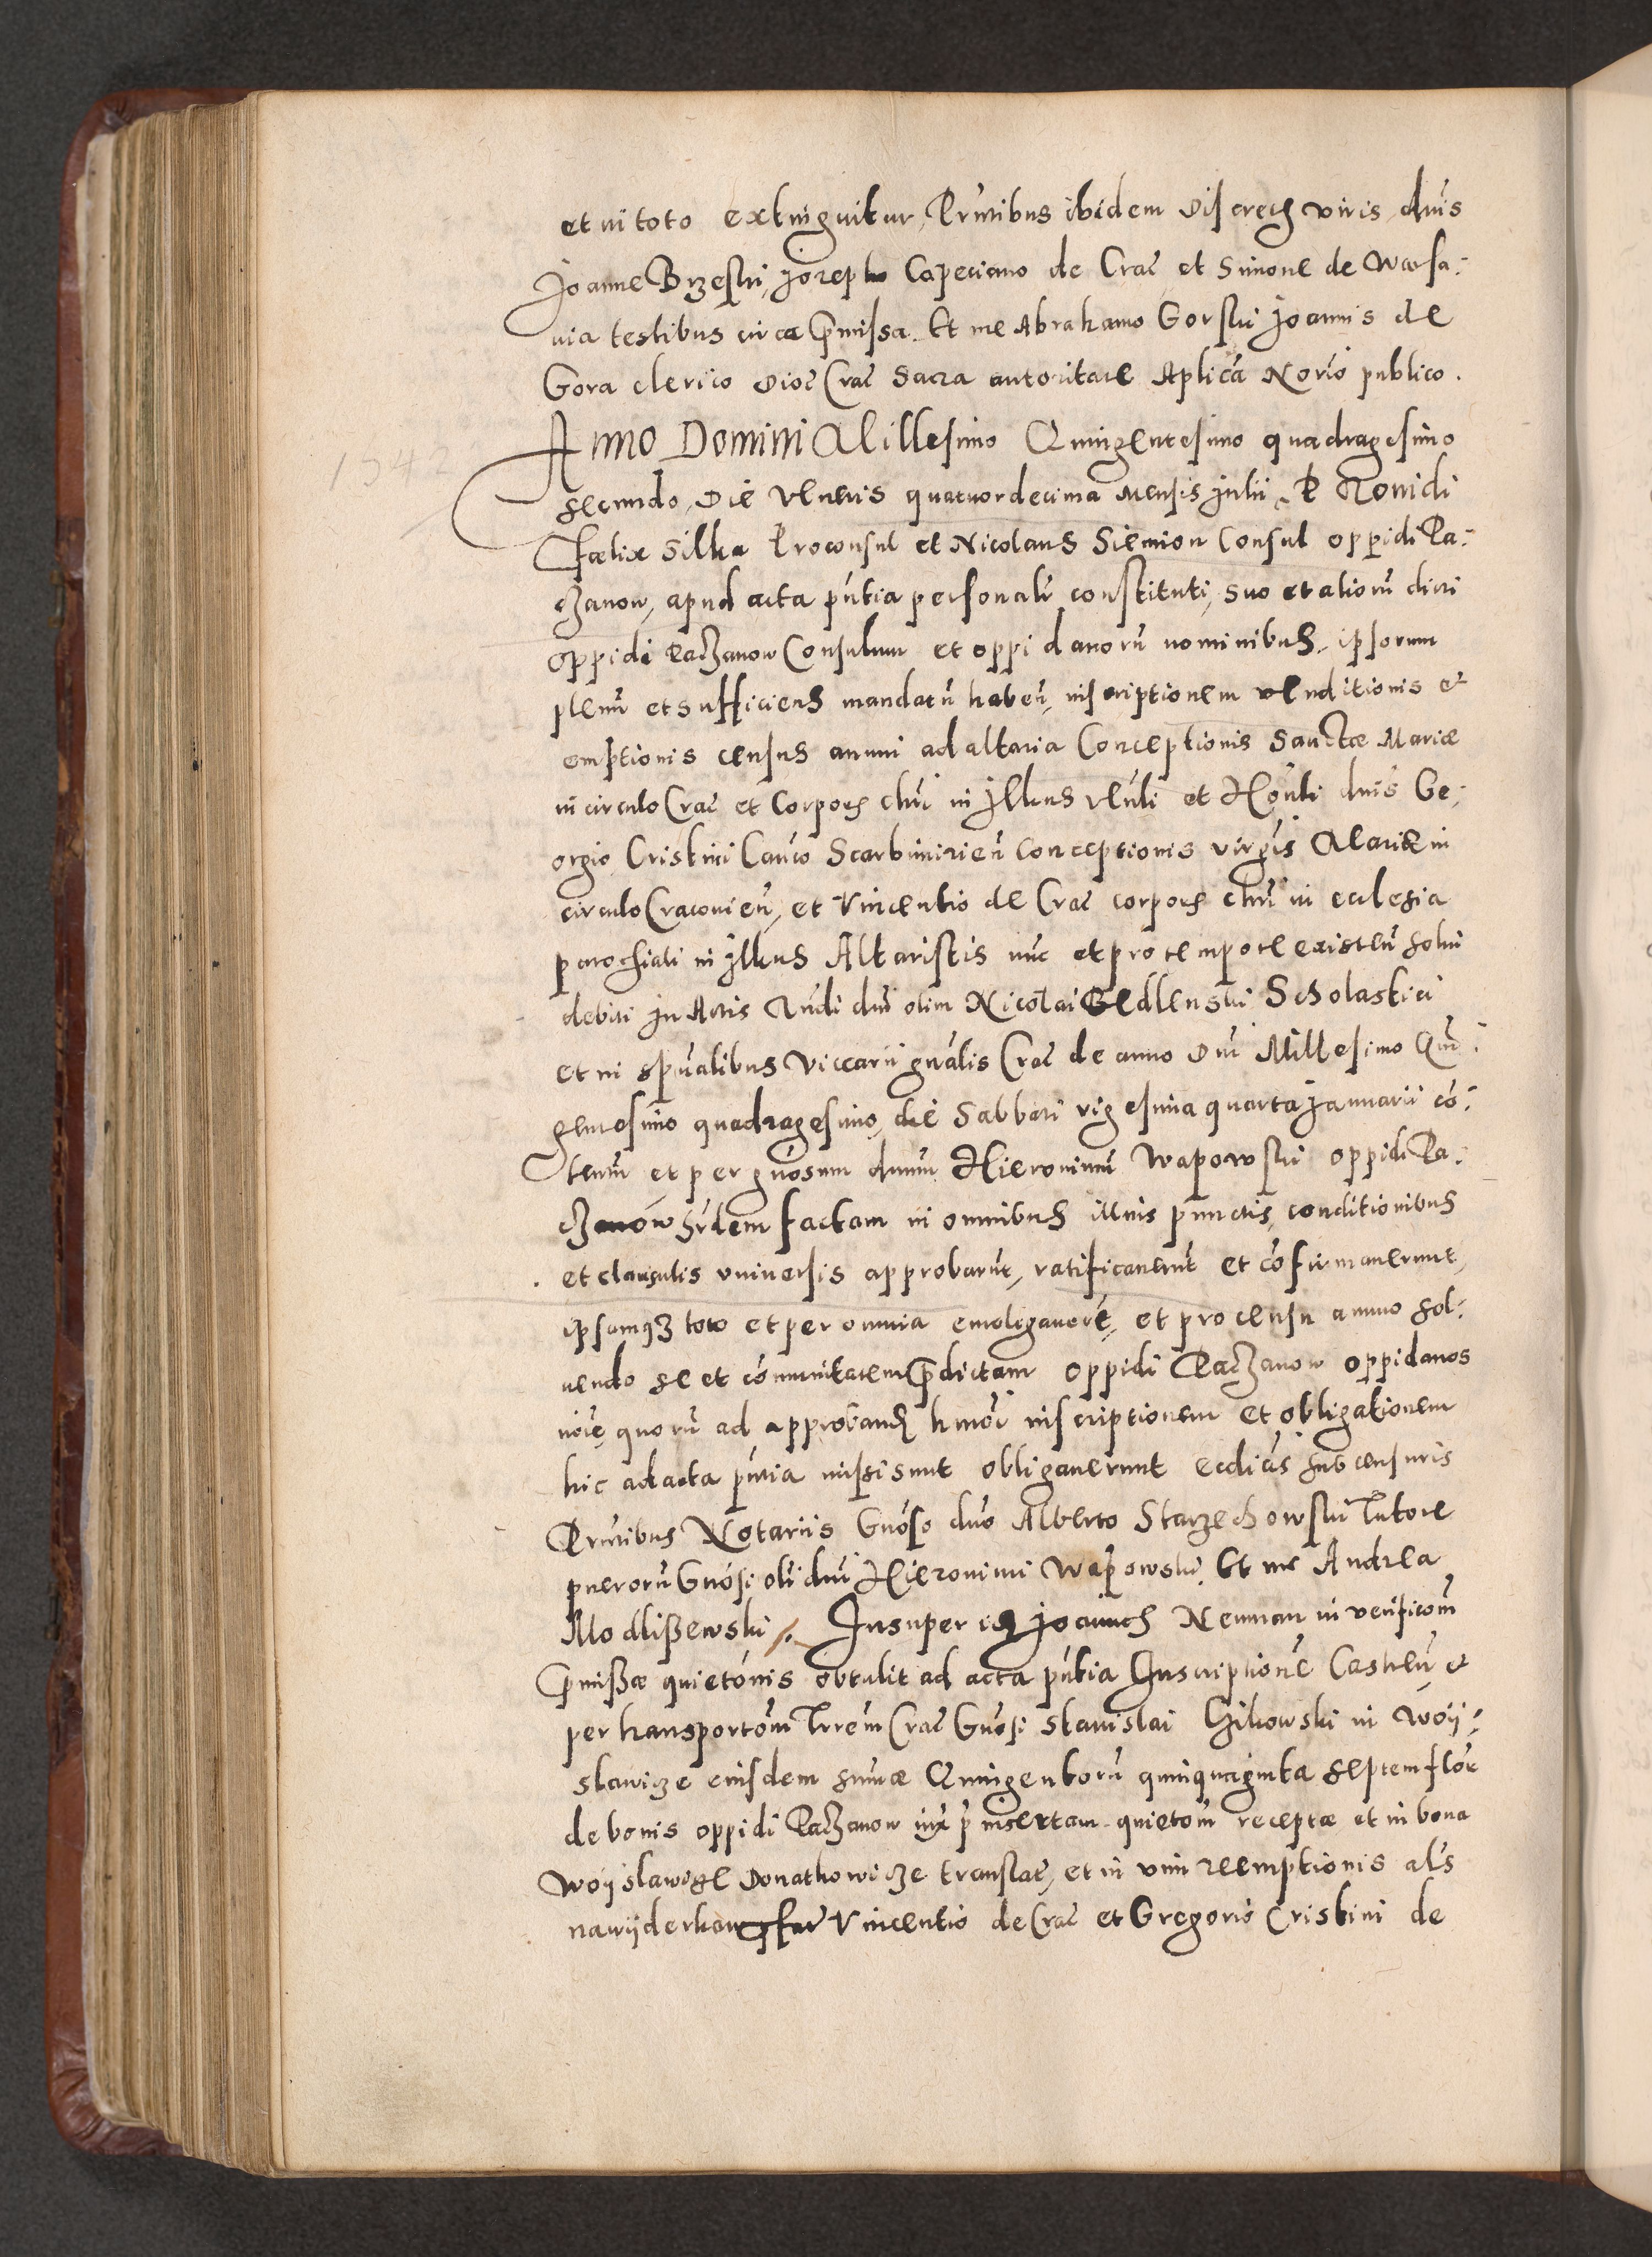 et in toto extinguitur, Pñtibus ibidem Discretis viris dnis
Joanne Brzeski, Joseph Capeciano de Crac̃ et Simone de Warsa:
uia testibus circa p̃missa. Et me Abrahamo Gorski Joannis de
Gora clerico Dioc̃ Crac̃ Sacra autoritate Aplica Norio publico.
1542
Anno Domini Millesimo Quingentesimo quadragesimo
secundo, Die veneris quatuordecima mensis Julii, P
Faelix Silka Proconsul et Nicolaus Siemion Consul oppidi Pa:
czanow, apud acta pñtia personalr̃ constituti, suo et aliorũ dicti
oppidi Paczanow Consulum et oppidanorũ nominibus, ipsorum
plenũ et sufficiens mandatũ habeñ, inscriptionem venditionis et
emptionis census annui ad altaria Conceptionis Sanctae Mariae
in circulo Crac̃ et Corporis chri in Ilkus Vñli et Hoñli dnis Ge:
orgio Criskini Canco Scarbimirieñ Conceptionis virginis Mariae in
circulo Cracouieñ, et Vincentio de Crac̃ corporis chri in ecclesia
parochiali in Ilkus Altaristis nũc et pro tempore existeñ solui
debiti In Actis Rñdi dni olim Nicolai Bedlenski Scholastici
et in spũalibus Viccarii gñalis Crac̃ de anno Dni Millesimo Quin:
gentesimo quadragesimo, die Sabbati vigesima quarta Januarii cõ:
tentũ et per gñosum dnum Hieronimũ Wapowski oppidi Pa:
czanow hr̃dem factam in omnibus illius punctis, conditionibus
et clausulis vniuersis approbarũt, ratificauerũt et cõfirmauerunt,
ipsamq3 toto et per omnia emologauerẽ, et pro censu annuo sol:
uendo se et cõmunitatem p̃dictam oppidi Paczanow oppidanos
noiẽ quorũ ad approband̃ hmõi inscriptionem et obligationem
hic ad acta pñtia missi sunt obligauerunt ecclicis sub censuris
Pñtibus Notariis Gñoso dño Alberto Starzechowski Tutore
puerorũ Gñosi oli dni Hieronimi Wapowski. Et me Andrea
Modlißewski. Insuper is Joannes Neuman in verificõm
p̃mißae quietõnis obtulit ad acta pñtia Inscriptionẽ Castreñ et
per transportõm Trrẽm Crac̃ Gñosi Stanislai Gikowski in Woÿ:
slawicze eiusdem sum̃ae Quingentorũ quinquaginta septem flor̃
de bonis oppidi Paczanow iux̃ p̃ insertam quietõm receptae et in bona
Woÿslawicze Donathowicze translat̃, et in vim reemptionis als
nawÿderkaw Vincentio de Crac̃ et Gregorio Criskini de